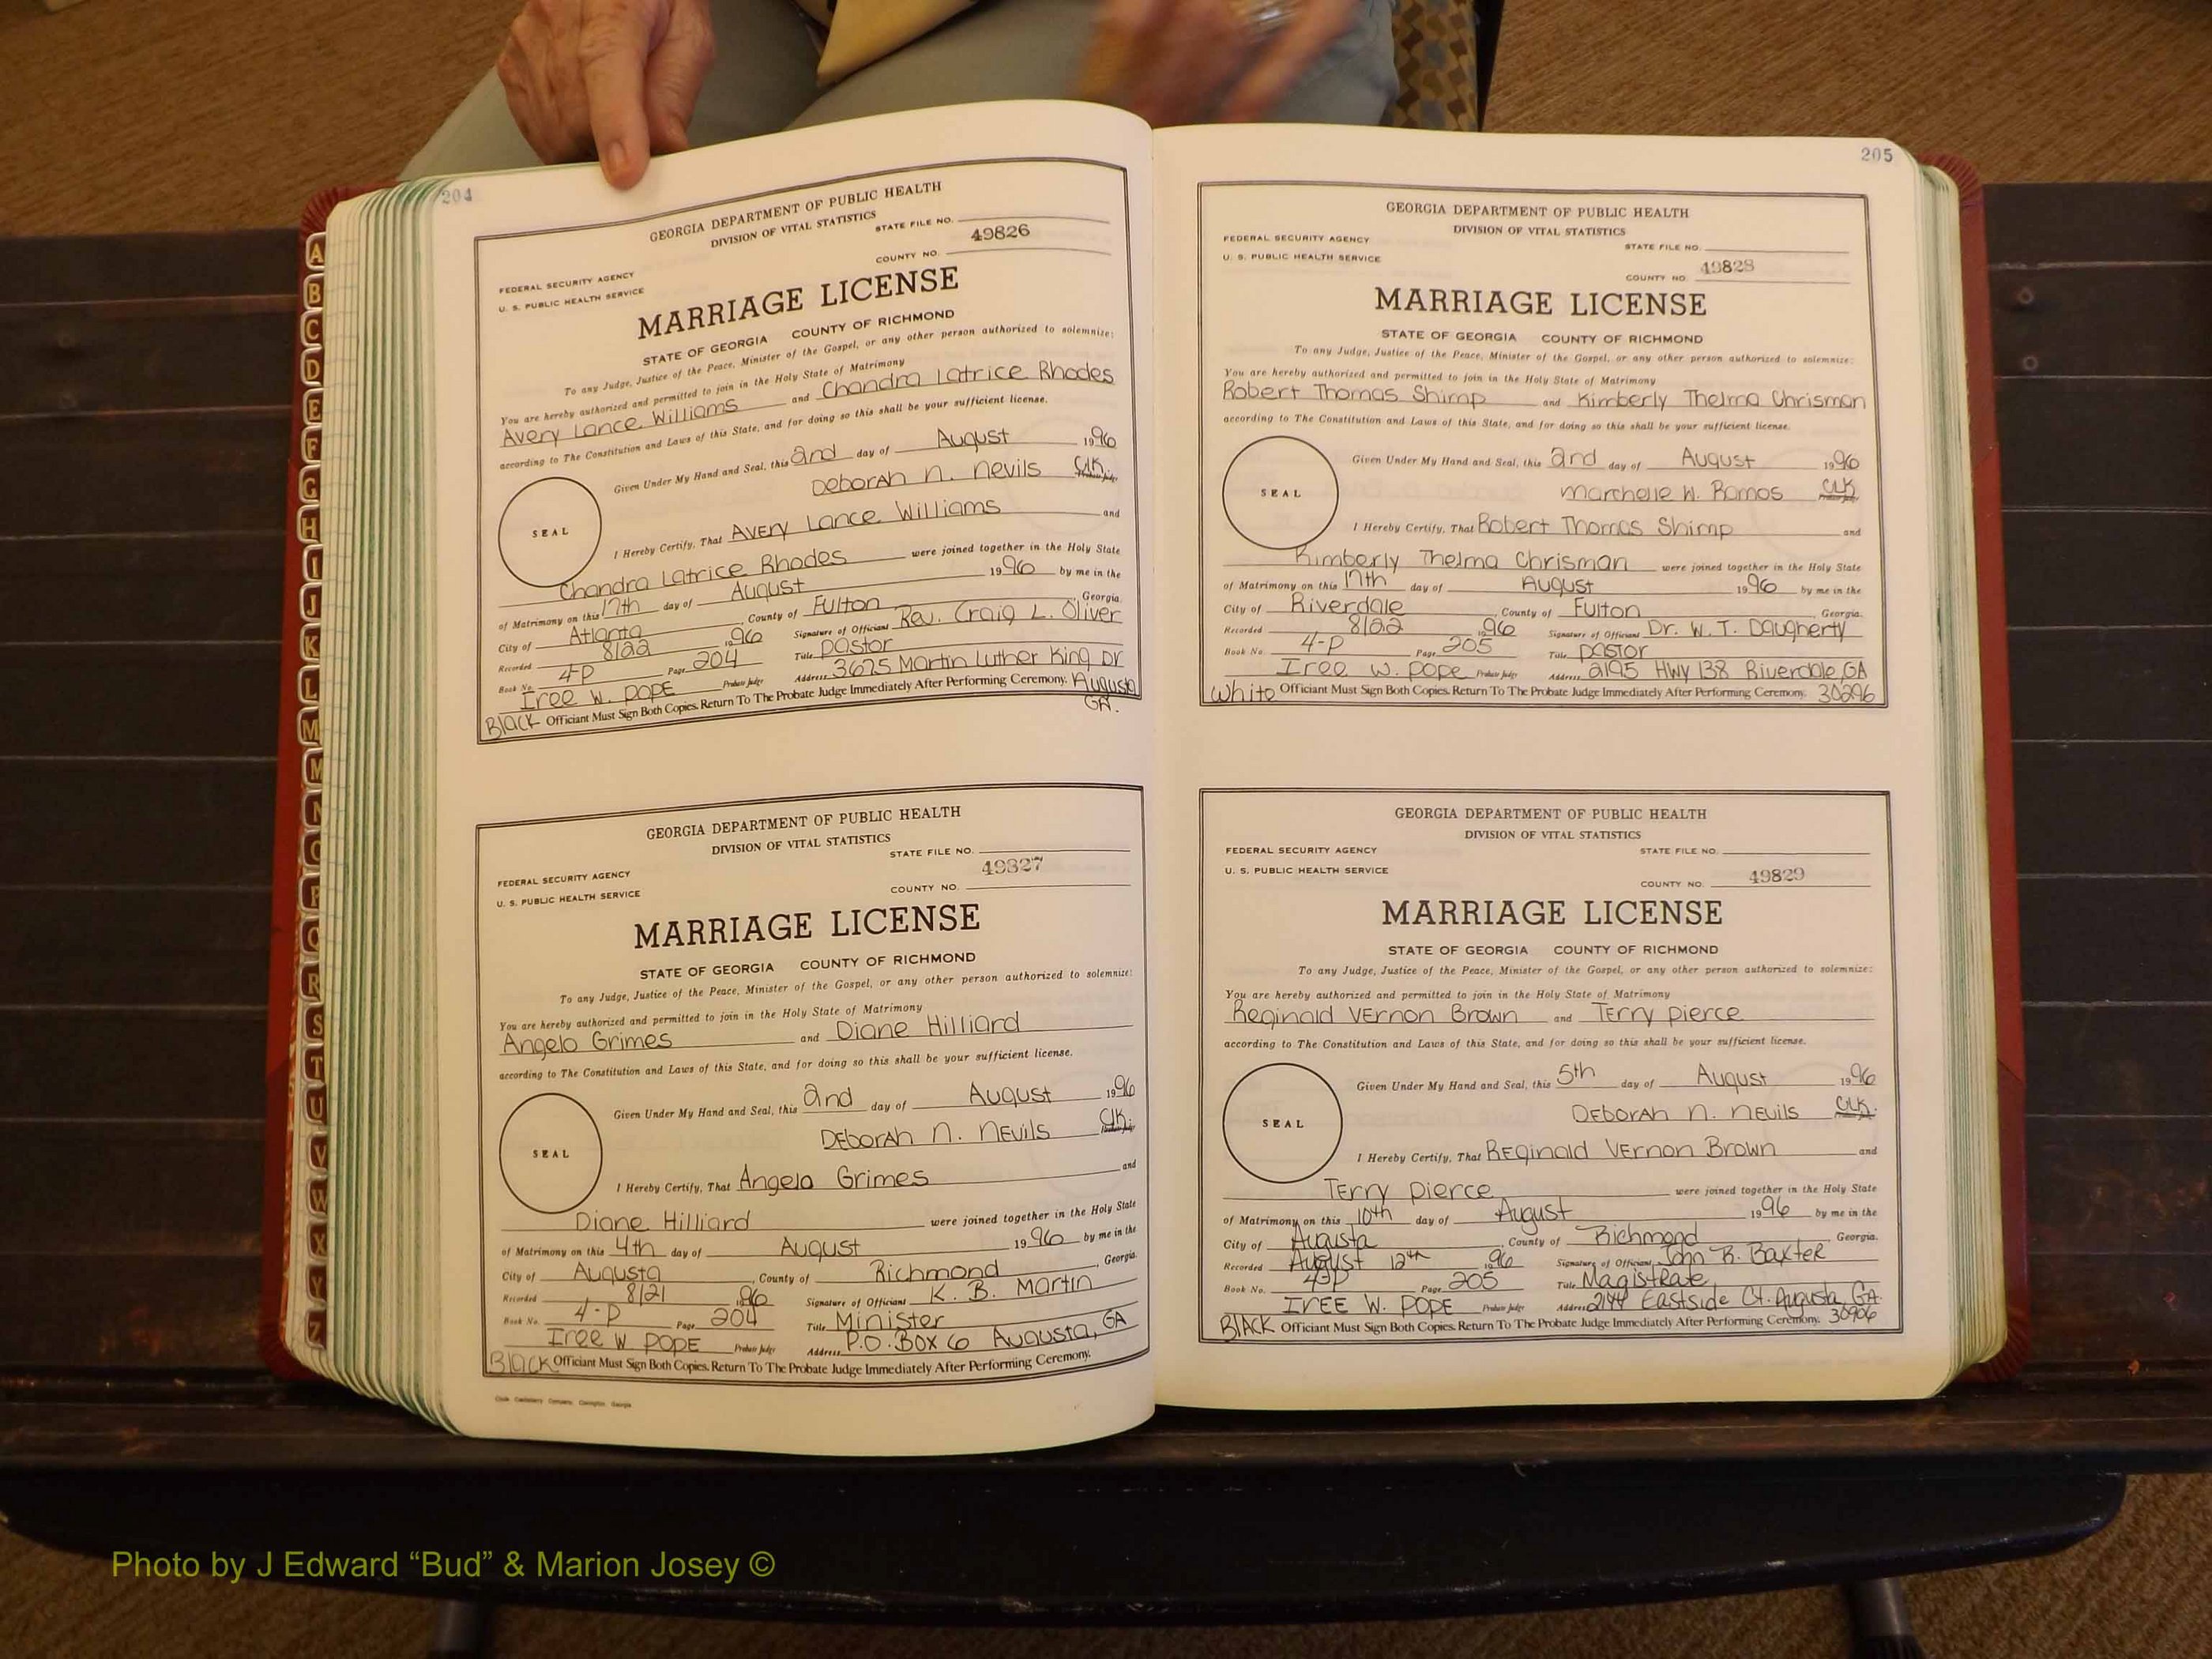 A
B
C
D
E
F
G
H
I
J
K
L
M
M
N
O
P
Q
R
S
T
U
V
W
X
Y
Z
204
GEORGIA DEPARTMENT OF PUBLIC HEALTH
DIVISION OF VITAL STATISTICS
STATE FILE NO.
49826
FEDERAL SECURITY AGENCY
COUNTY NO.
U. S. PUBLIC HEALTH SERVICE
MARRIAGE LICENSE
STATE OF GEORGIA COUNTY OF RICHMOND
To any Judge, Justice of the Peace, Minister of the Gospel, or any other person authorized to solemnize:
You are hereby authorized and permitted to join in the Holy State of Matrimony
Avery Lance Williams and Chandra Latrice Rhodes
according to The Constitution and Laws of this State, and for doing so this shall be your sufficient license.
Given Under My Hand and Seal, this 2nd day of August 1996
Deborah N. Nevils Clk.
SEAL
I Hereby Certify, That Avery Lance Williams and
Chandra Latrice Rhodes were joined together in the Holy State
of Matrimony on this 17th day of August 1996 by me in the
City of Atlanta, County of Fulton, Georgia.
Recorded 8/22 1996 Signature of Officiant Rev. Craig L. Oliver
Book No. 4-P Page 204 Title Pastor
Iree W. Pope Probate Judge Address 3625 Martin Luther King Dr
Black Officiant Must Sign Both Copies. Return To The Probate Judge Immediately After Performing Ceremony. Augusta
GA.
GEORGIA DEPARTMENT OF PUBLIC HEALTH
DIVISION OF VITAL STATISTICS
STATE FILE NO.
49827
FEDERAL SECURITY AGENCY
COUNTY NO.
U. S. PUBLIC HEALTH SERVICE
MARRIAGE LICENSE
STATE OF GEORGIA COUNTY OF RICHMOND
To any Judge, Justice of the Peace, Minister of the Gospel, or any other person authorized to solemnize:
You are hereby authorized and permitted to join in the Holy State of Matrimony
Angelo Grimes and Diane Hilliard
according to The Constitution and Laws of this State, and for doing so this shall be your sufficient license.
Given Under My Hand and Seal, this 2nd day of August 1996
Deborah N. Nevils Clk.
SEAL
I Hereby Certify, That Angelo Grimes and
Diane Hilliard were joined together in the Holy State
of Matrimony on this 4th day of August 1996 by me in the
City of Augusta, County of Richmond, Georgia.
Recorded 8/21 1996 Signature of Officiant K. B. Martin
Book No. 4-P Page 204 Title Minister
Iree W Pope Probate Judge Address P.O. Box 6 Augusta, GA
Black Officiant Must Sign Both Copies. Return To The Probate Judge Immediately After Performing Ceremony.
205
GEORGIA DEPARTMENT OF PUBLIC HEALTH
DIVISION OF VITAL STATISTICS
FEDERAL SECURITY AGENCY
STATE FILE NO.
U. S. PUBLIC HEALTH SERVICE
COUNTY NO. 49828
MARRIAGE LICENSE
STATE OF GEORGIA COUNTY OF RICHMOND
To any Judge, Justice of the Peace, Minister of the Gospel, or any other person authorized to solemnize:
You are hereby authorized and permitted to join in the Holy State of Matrimony
Robert Thomas Shimp and Kimberly Thelma Chrisman
according to The Constitution and Laws of this State, and for doing so this shall be your sufficient license.
Given Under My Hand and Seal, this 2nd day of August 1996
Marchelle W. Ramos Clk
SEAL
I Hereby Certify, That Robert Thomas Shimp and
Kimberly Thelma Chrisman were joined together in the Holy State
of Matrimony on this 17th day of August 1996 by me in the
City of Riverdale, County of Fulton Georgia.
Recorded 8/22 1996 Signature of Officiant Dr. W. T. Daugherty
Book No. 4-P Page 205 Title Pastor
Iree W. Pope Probate Judge Address 2195 Hwy 138 Riverdale, GA
White Officiant Must Sign Both Copies. Return To The Probate Judge Immediately After Performing Ceremony. 30296
GEORGIA DEPARTMENT OF PUBLIC HEALTH
DIVISION OF VITAL STATISTICS
FEDERAL SECURITY AGENCY
STATE FILE NO.
U. S. PUBLIC HEALTH SERVICE
COUNTY NO. 49829
MARRIAGE LICENSE
STATE OF GEORGIA COUNTY OF RICHMOND
To any Judge, Justice of the Peace, Minister of the Gospel, or any other person authorized to solemnize:
You are hereby authorized and permitted to join in the Holy State of Matrimony
Reginald Vernon Brown and Terry Pierce
according to The Constitution and Laws of this State, and for doing so this shall be your sufficient license.
Given Under My Hand and Seal, this 5th day of August 1996
Deborah N. Nevils Clk.
SEAL
I Hereby Certify, That Reginald Vernon Brown and
Terry Pierce were joined together in the Holy State
of Matrimony on this 10th day of August 1996 by me in the
City of Augusta, County of Richmond, Georgia.
Recorded August 12th 1996 Signature of Officiant John R. Baxter
Book No. 4-P Page 205 Title Magistrate
Iree W. Pope Probate Judge Address 2144 Eastside Ct. Augusta, GA.
Black Officiant Must Sign Both Copies. Return To The Probate Judge Immediately After Performing Ceremony. 30906
Photo by J Edward “Bud” & Marion Josey ©